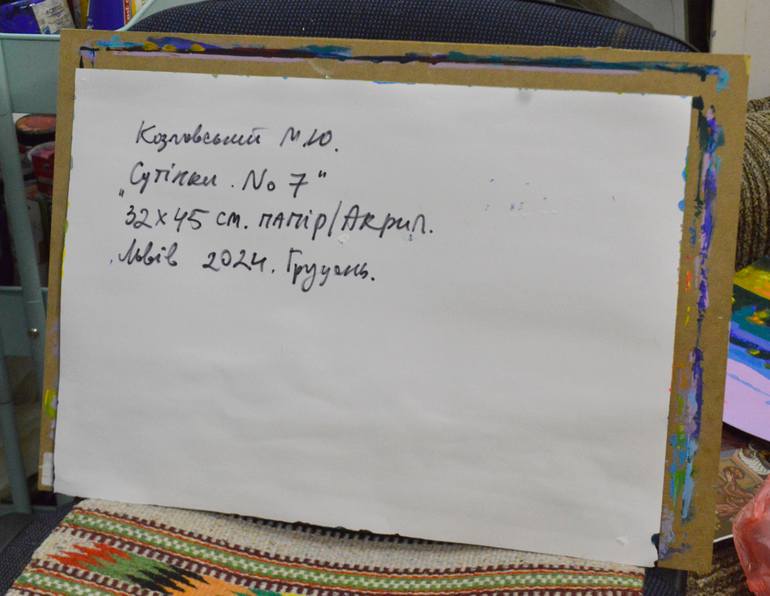 Козловський М.Ю.
„Сутінки. No 7"
32х45 см. папір/Акрил.
Львів 2024. Грудень.